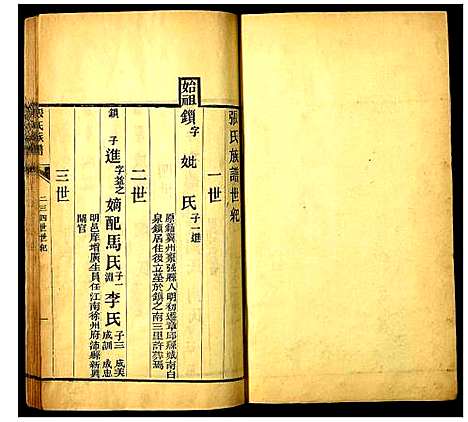 張氏族譜世紀
一世
始祖鎖 字 妣 氏 子一進
原籍冀州棗强縣人明初遷章邱縣城南白
泉鎮居住後立塋於鎮之南三里許葬焉
二世
鎖 子 進 字益之 嫡配馬氏 子一 淵 李氏 子三 成美 成訓 成忠
明邑庠增廣生員任江南徐州府沛縣新興
閘官
三世
張氏族譜
二三四世世紀
一